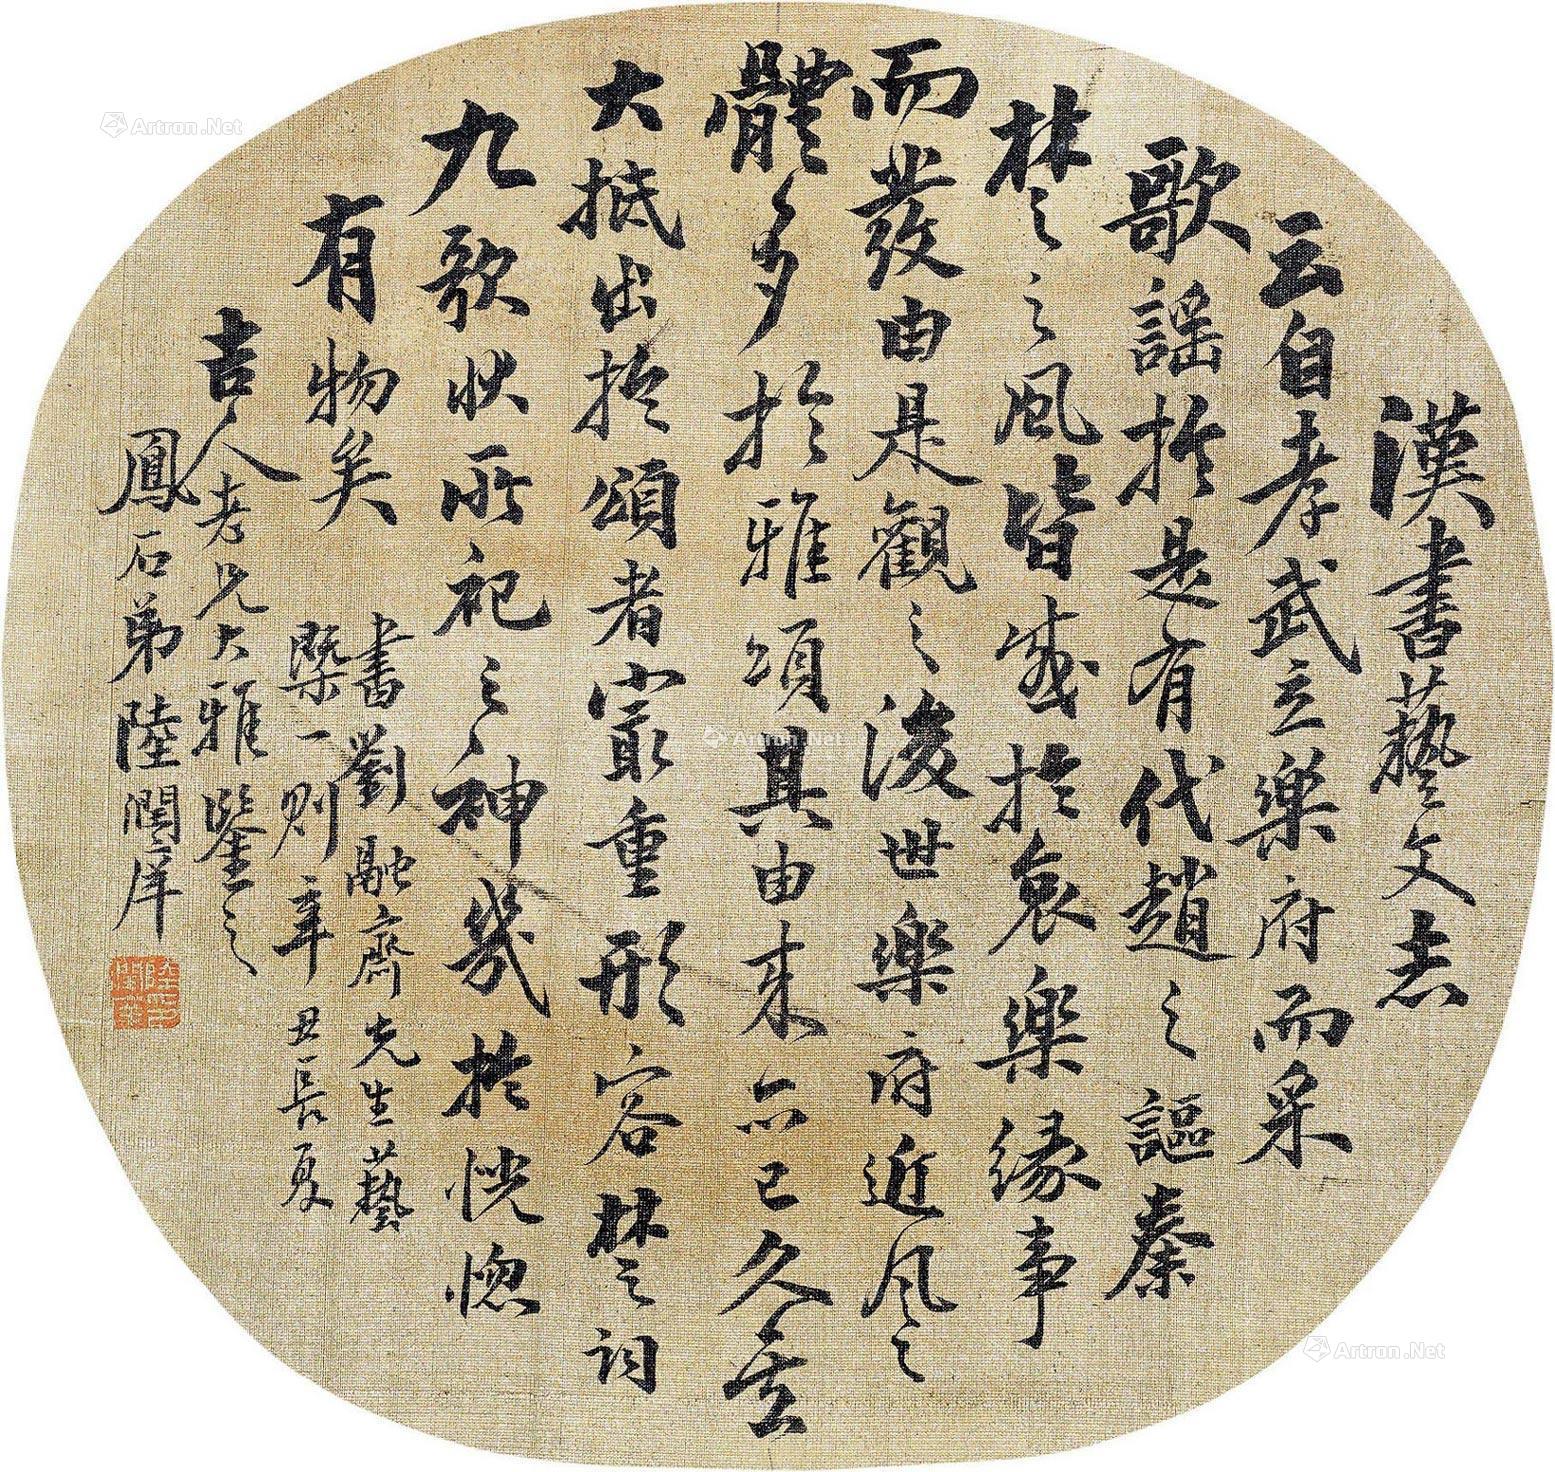 漢書藝文志
云自孝武立樂府而采
歌謠於是有代趙之謳秦
楚之風皆感於哀樂緣事
而發由是觀之後世樂府近風之
體多於雅頌其由來亦已久矣
大抵出於頌者寂重形容楚詞
九歌狀所祀之神幾於恍惚
有物矣
書劉融齋先生藝
槩一則辛丑長夏
吉人老兄大雅鑒之
鳳石弟陸潤庠
Artron.Net
Artron.Net
Artron.Net
Artron.Net